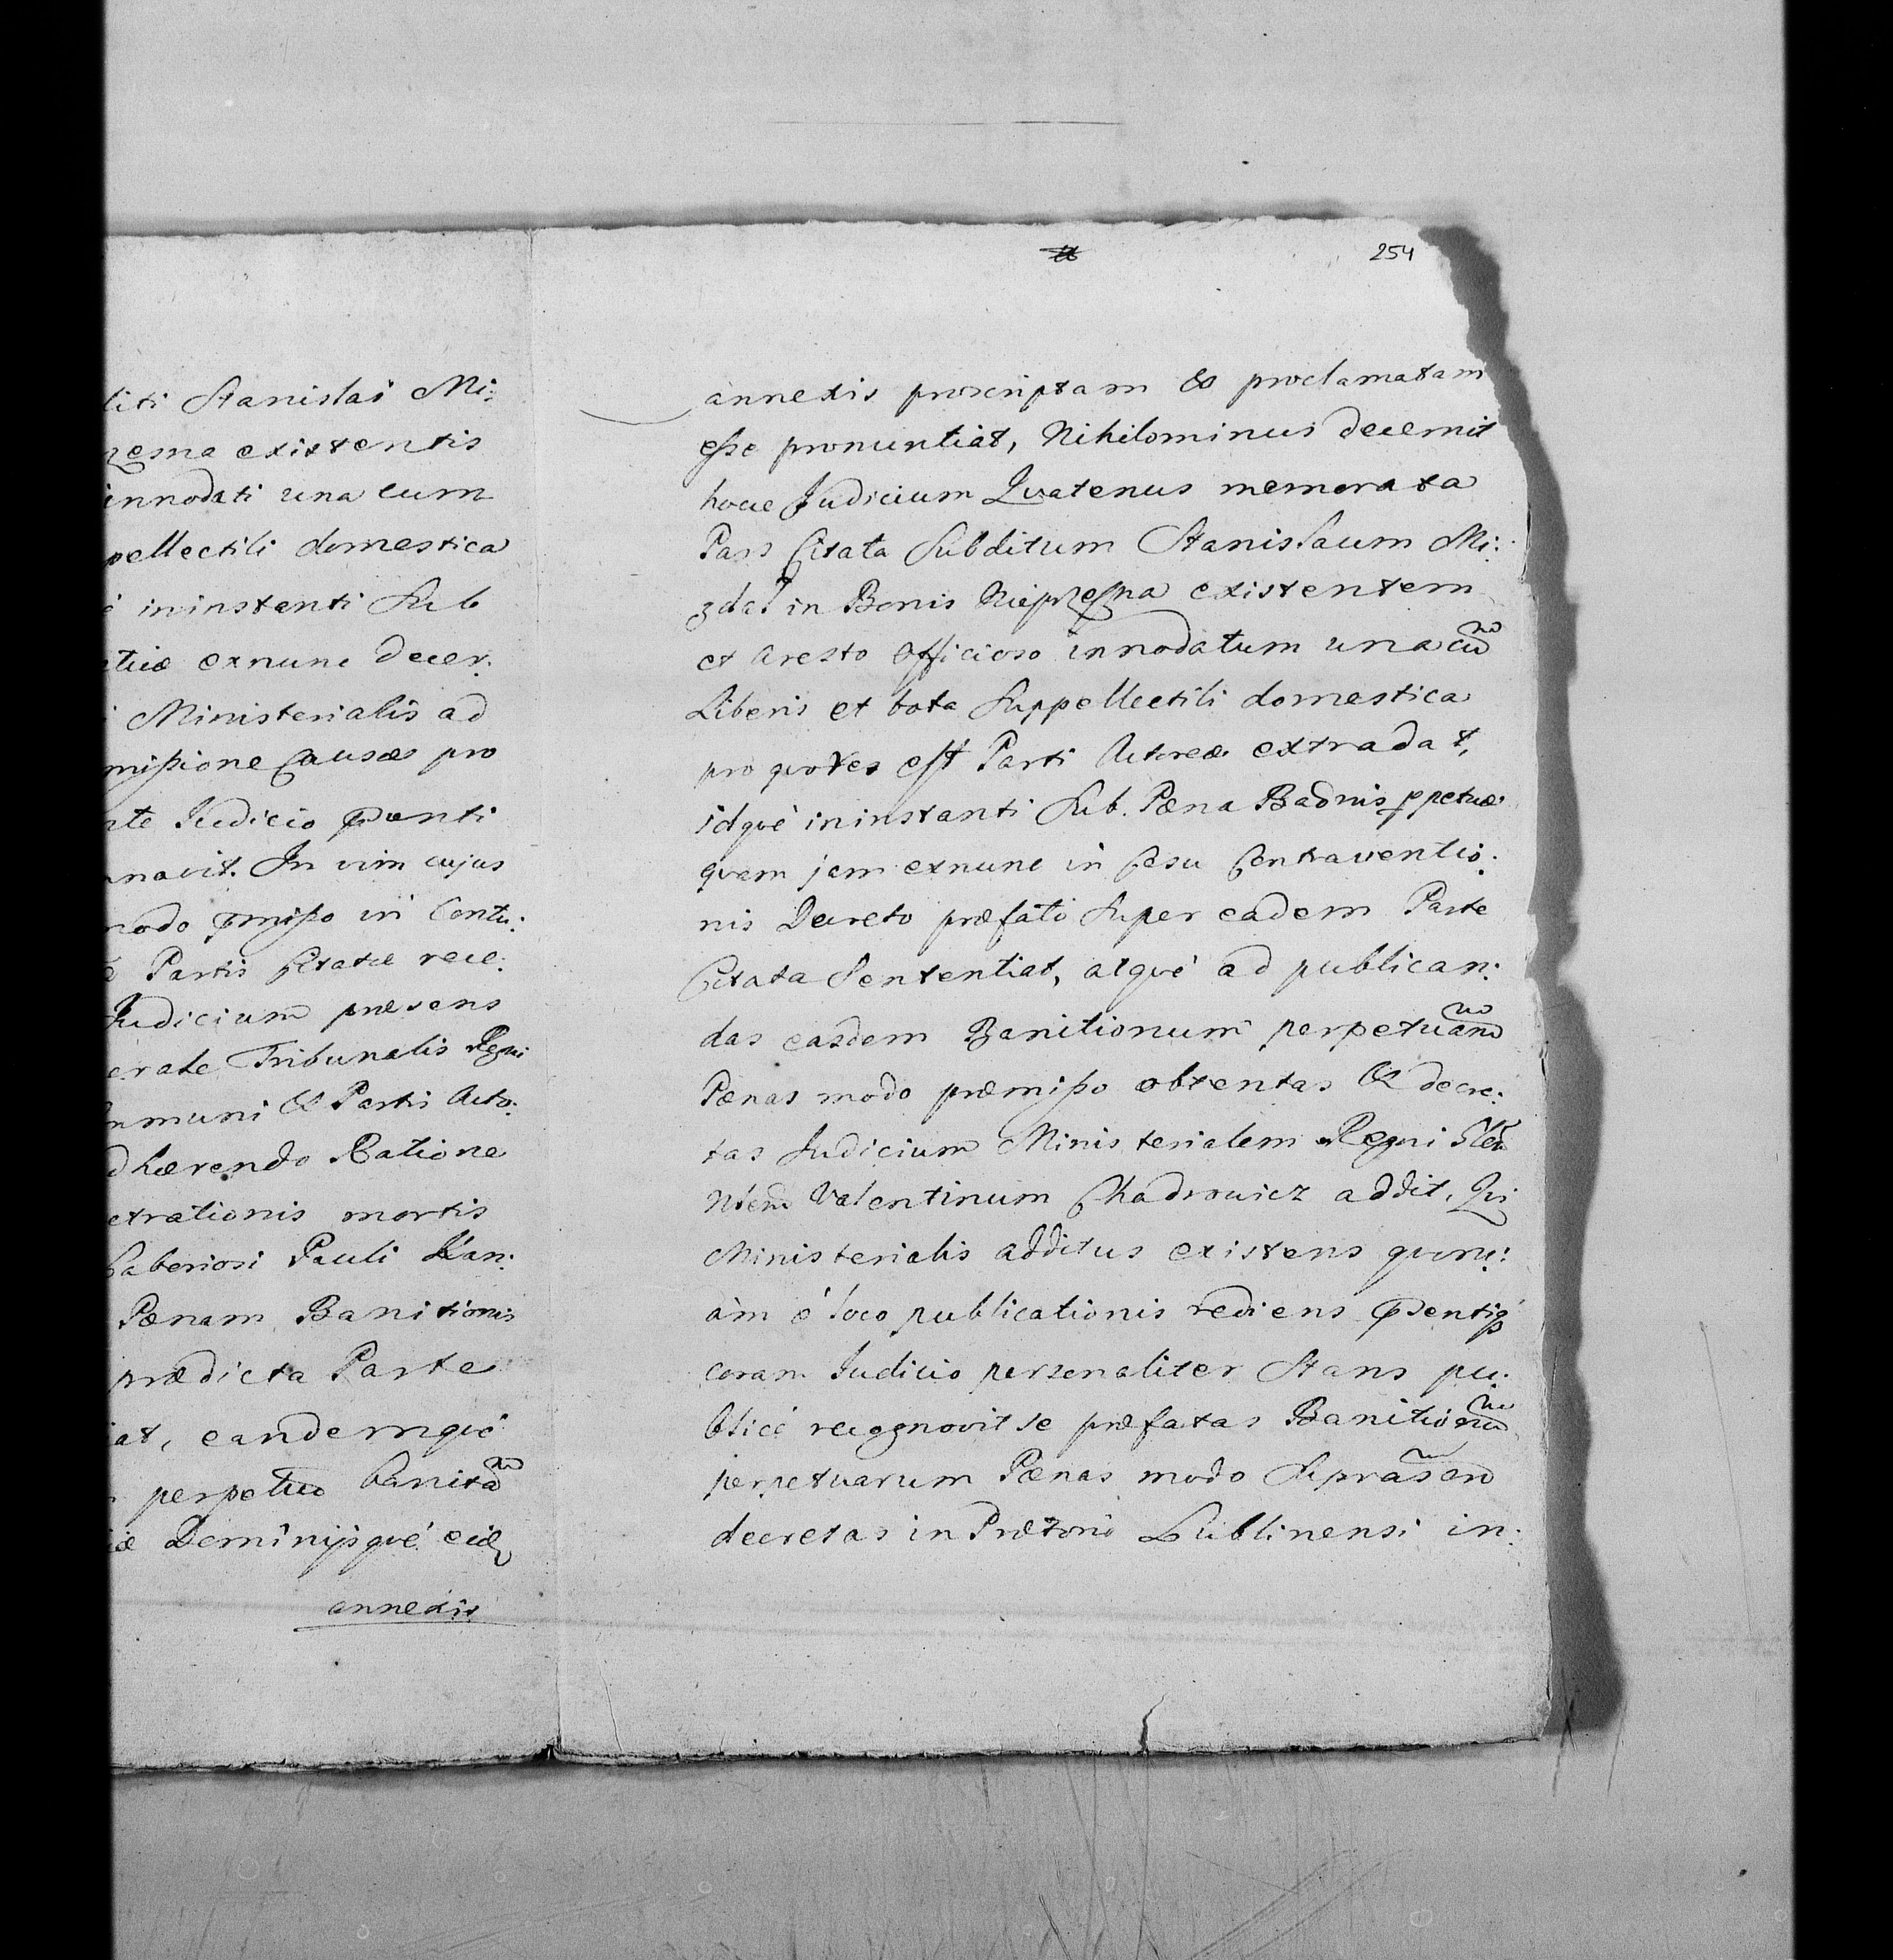 liti Stanislai Mi:
rzesna existentis
innodati una cum
pellectili domestica
é ininstanti Sub
etuæ exnunc decer:
i Ministerialis ad
mißione Causæ pro
nte Judicio
navit. In vim cujus
modo in Contu:
Partis Citatæ rece:
Judicium præsens
erale Tribunalis Regni
mmuni & Parti Acto:
dhærendo Ratione
etrationis mortis
Laboriosi Pauli Kan:
Pænam Banitionis
prædicta Parte
iat, eandemque
perpetuo banita
iæ Dominijsque
annexis
254
annexis proscriptam & proclamatam
eße pronuntiat, Nihilominus decernit
hocce Judicium Quatenus memorata
Pars Citata Subditum Stanislaum Mi:
zdal in Bonis Nieprzesna existentem
et Aresto Officioso innodatum una cũ
Liberis et tota Suppellectili domestica
pro qvot res est Parti Actoreæ extradat,
idqvé ininstanti Sub Pæna Badnis ppetuæ
qvam jam exnunc in Casu Contraventio:
nis Decreto præfato Super eadem Parte
Citata Sententiat, atqvé ad publican:
das easdem Banitionum perpetuarũ
Pænas modo præmißo obtentas & decre:
tas Judicium Ministerialem Regni Glem
Nblem Valentinum Chadrowicz addit, Qvi
Ministerialis additus existens qvoni:
am é loco publicationis rediens
coram Judicio personaliter Stans pu:
blicé recognovit se præfatas Banitionũ
perpetuarum Pænas modo
decretas in Prætorio Lublinensi in: